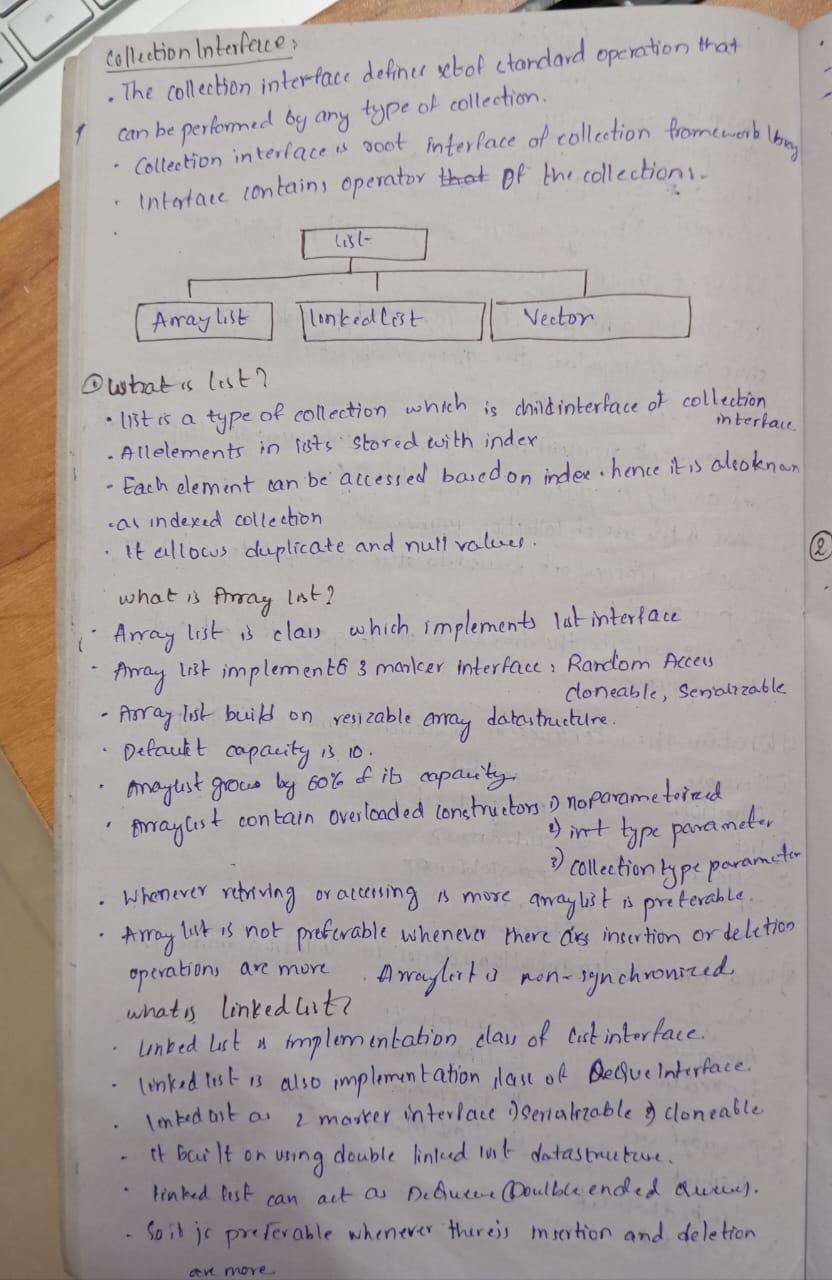 Collection Interface:
. The collection interface defines set of standard operation that
can be performed by any type of collection.
· Collection interface is root interface of collection framework
· Interface contains operator that of the collections.
List
Array list
linked list
Vector
① what is list?
· list is a type of collection which is child interface of collection
interface
. All elements in lists stored with index
- Each element can be accessed based on index. hence it is also known
. as indexed collection
· It allows duplicate and null values.
what is Array list?
· Array list is class which implements list interface
- Array list implements 3 marker interface: Random Access
cloneable, Serializable
- Array list build on resizable array datastructure.
· Default capacity is 10.
· Arraylist grows by 50% of its capacity.
· Arraylist contain overloaded constructors 1) noparameterized
2) int type parameter
3) collection type parameter
. Whenever retriving or accessing is more arraylist is preferable.
· Array list is not preferable whenever there are insertion or deletion
operations are more . Arraylist is non-synchronized.
what is linked list?
· linked list is implementation class of list interface.
- linked list is also implementation class of Deque Interface.
. linked list as 2 marker interface 1) serializable 2) cloneable
- it built on using double linked list datastructure.
· linked list can act as DeQueue (Doulble ended Queue).
- So it is preferable whenever there is insertion and deletion
are more
②